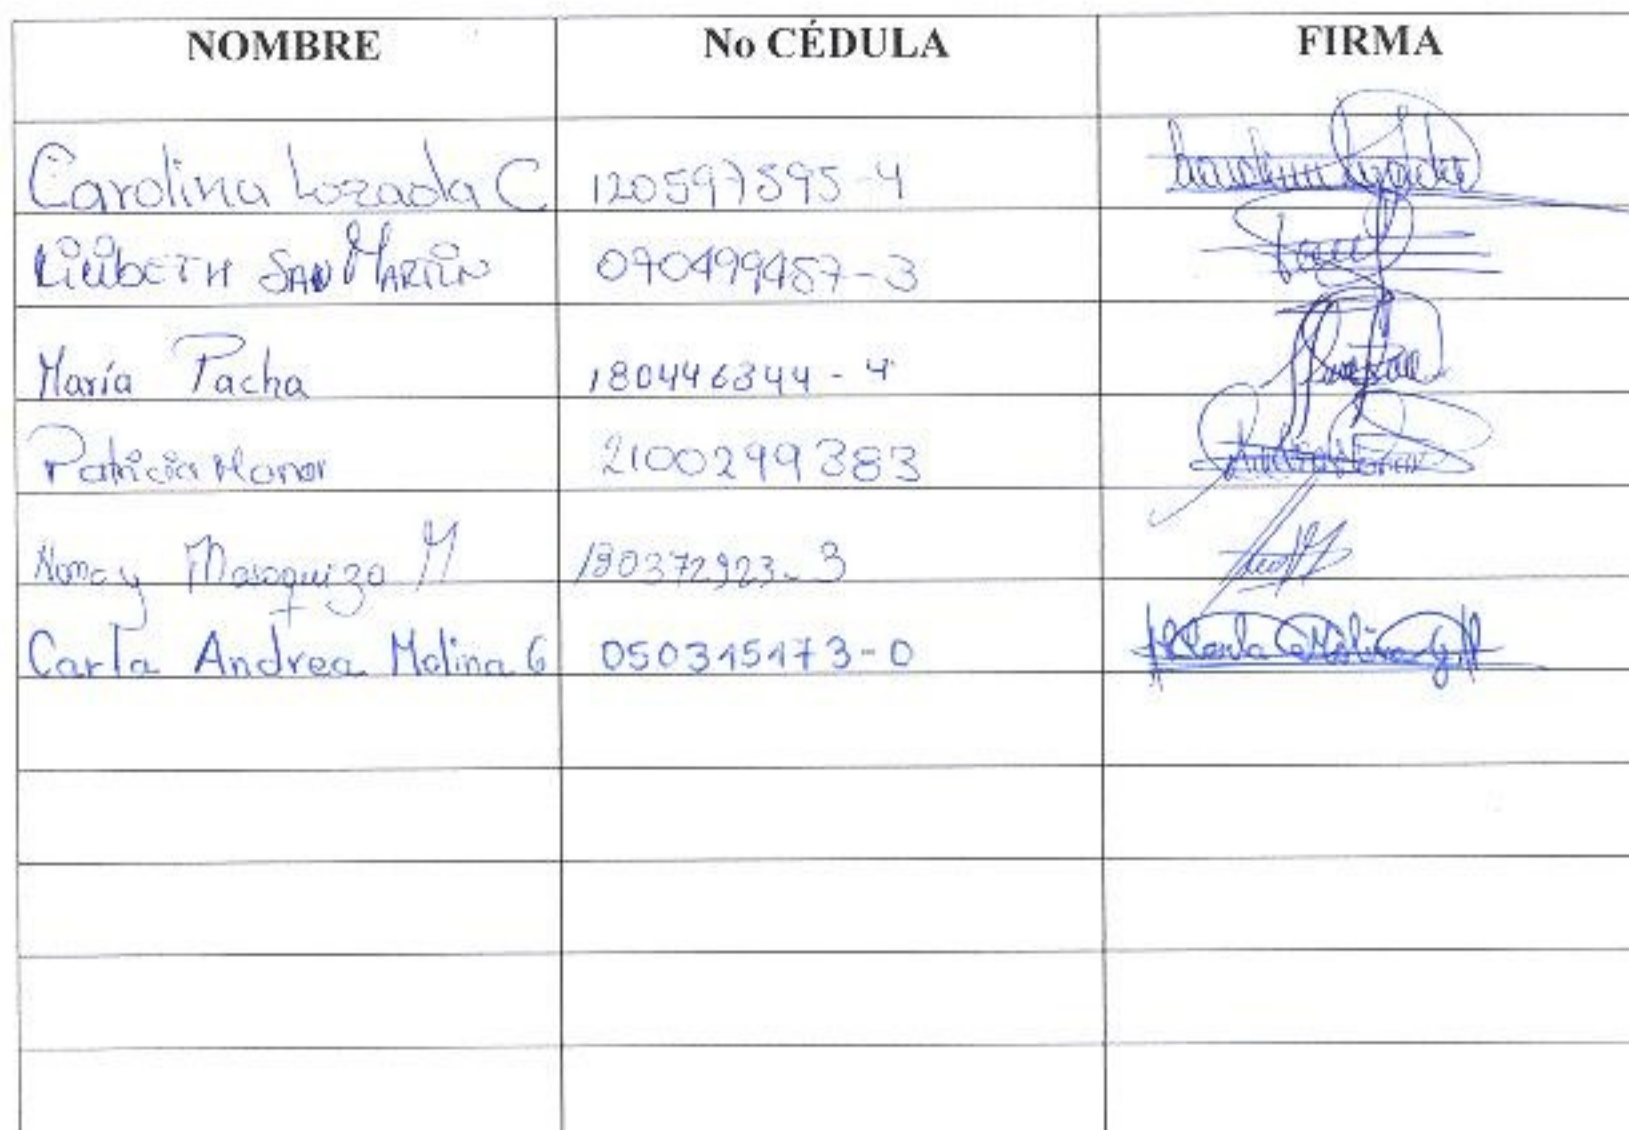 NOMBRE No CÉDULA FIRMA
Carolina Lozada C 120597595-4
Lilibeth San Martín 090499457-3
María Pacha 180446344-4
Patricia Manor 2100299383
Nancy Masaquiza M 180372923-3
Carla Andrea Molina G 050345473-0 Carla Molina G